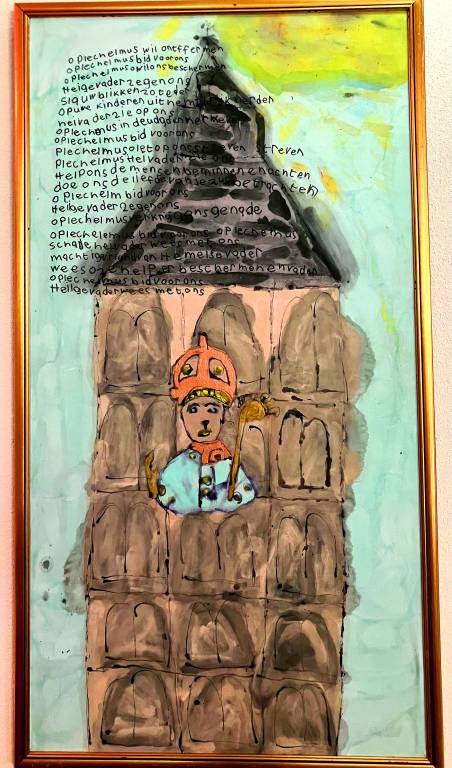 O Plechelmus wil ontffermen
O Plechelmus bid voor ons
O Plechelmus owil ons beschermen
Heilge vader zegen ons
Sla uw blikken zo teder
O pure kinderen uit hemel herder
heil vader zie op ons
O Plechelmus in deugden
O Plechelmus bid voor ons
Plechelmus o let op ons streven
Plechelmus Heil vader
Help ons de mensen beminnen en achten
doe ons de liefde van
O Plechelm bid voor ons
Heilge vader zegen ons
O Plechelmus verkrijg ons genade
O Plechelemus bid voor ons O Plechelmus
schade heil vader wees met ons
machtige vriend van Hemelse vader
wees onze helper beschermer en vader
O Plechelmus bid voor ons
Heilge vader wees met ons